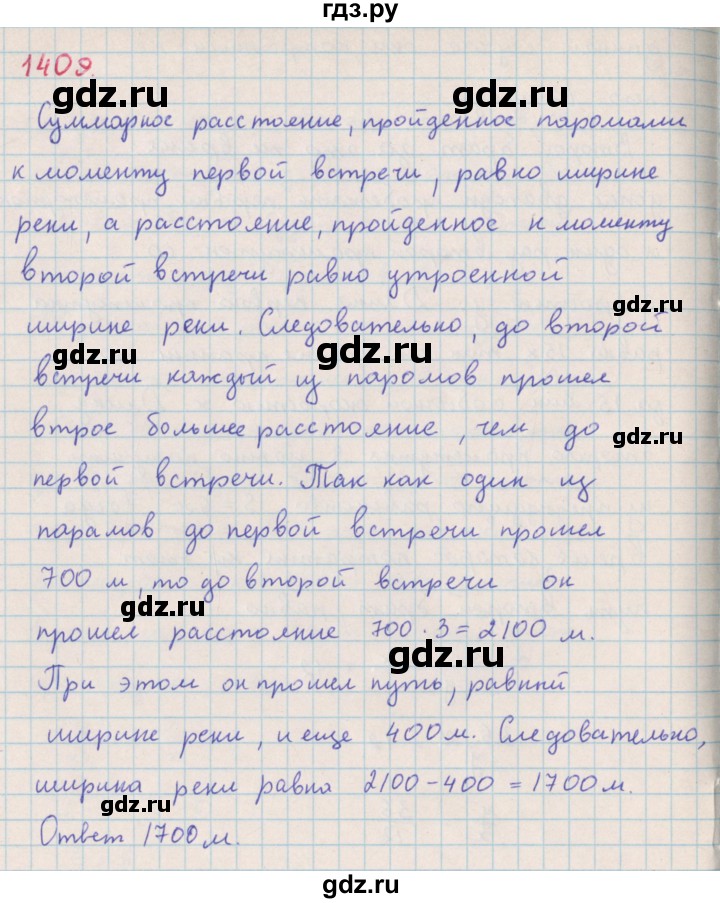 гдз.ру
1409.
gdz.ru gdz.ru
Суммарное расстояние, пройденное паромами
к моменту первой встречи, равно ширине
реки, а расстояние, пройденное к моменту
второй встречи равно утроенной
gdz.ru
ширине реки. Следовательно, до второй
gdz.ru gdz.ru
встречи каждый из паромов прошел
втрое большее расстояние, чем до
gdz.ru
первой встречи. Так как один из
парамов до первой встречи прошел
700 м, то до второй встречи он
gdz.ru
прошел расстояние 700 · 3 = 2100 м.
gdz.ru
При этом он прошел путь, равный
ширине реки, и еще 400 м. Следовательно,
ширина реки равна 2100 - 400 = 1700 м.
gdz.ru
Ответ 1700 м.
gdz.ru